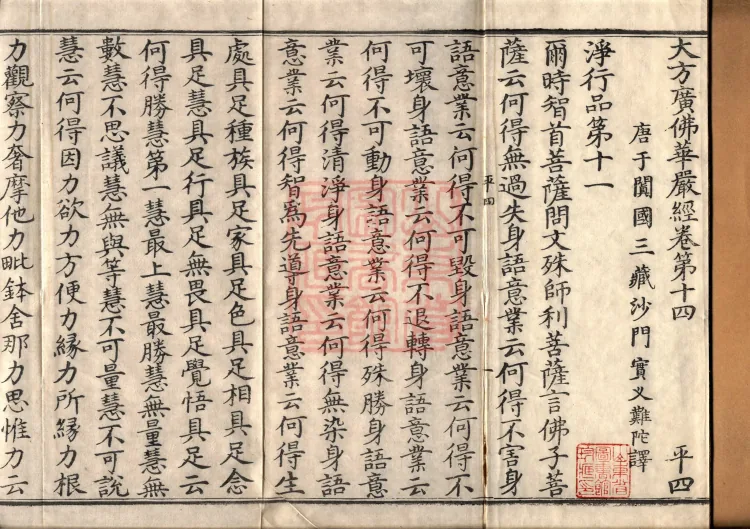 大方廣佛華嚴經卷第十四 平四
唐于闐國三藏沙門實叉難陀譯
淨行品第十一
爾時智首菩薩問文殊師利菩薩言佛子菩
薩云何得無過失身語意業云何得不害身
平四 一
語意業云何得不可毀身語意業云何得不
可壞身語意業云何得不退轉身語意業云
何得不可動身語意業云何得殊勝身語意
業云何得清淨身語意業云何得無染身語
意業云何得智為先導身語意業云何得生
處具足種族具足家具足色具足相具足念
具足慧具足行具足無畏具足覺悟具足云
何得勝慧第一慧最上慧最勝慧無量慧無
數慧不思議慧無與等慧不可量慧不可說
慧云何得因力欲力方便力緣力所緣力根
力觀察力奢摩他力毗鉢舍那力思惟力云